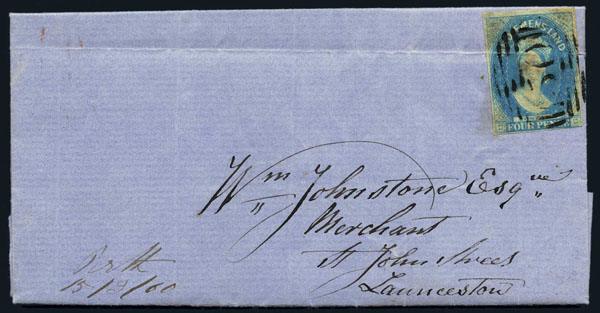 EMENS LAND
FOUR PENCE
Wm Johnstone Esqre
Merchant
St John Street
Launceston
Perth
15/3/60